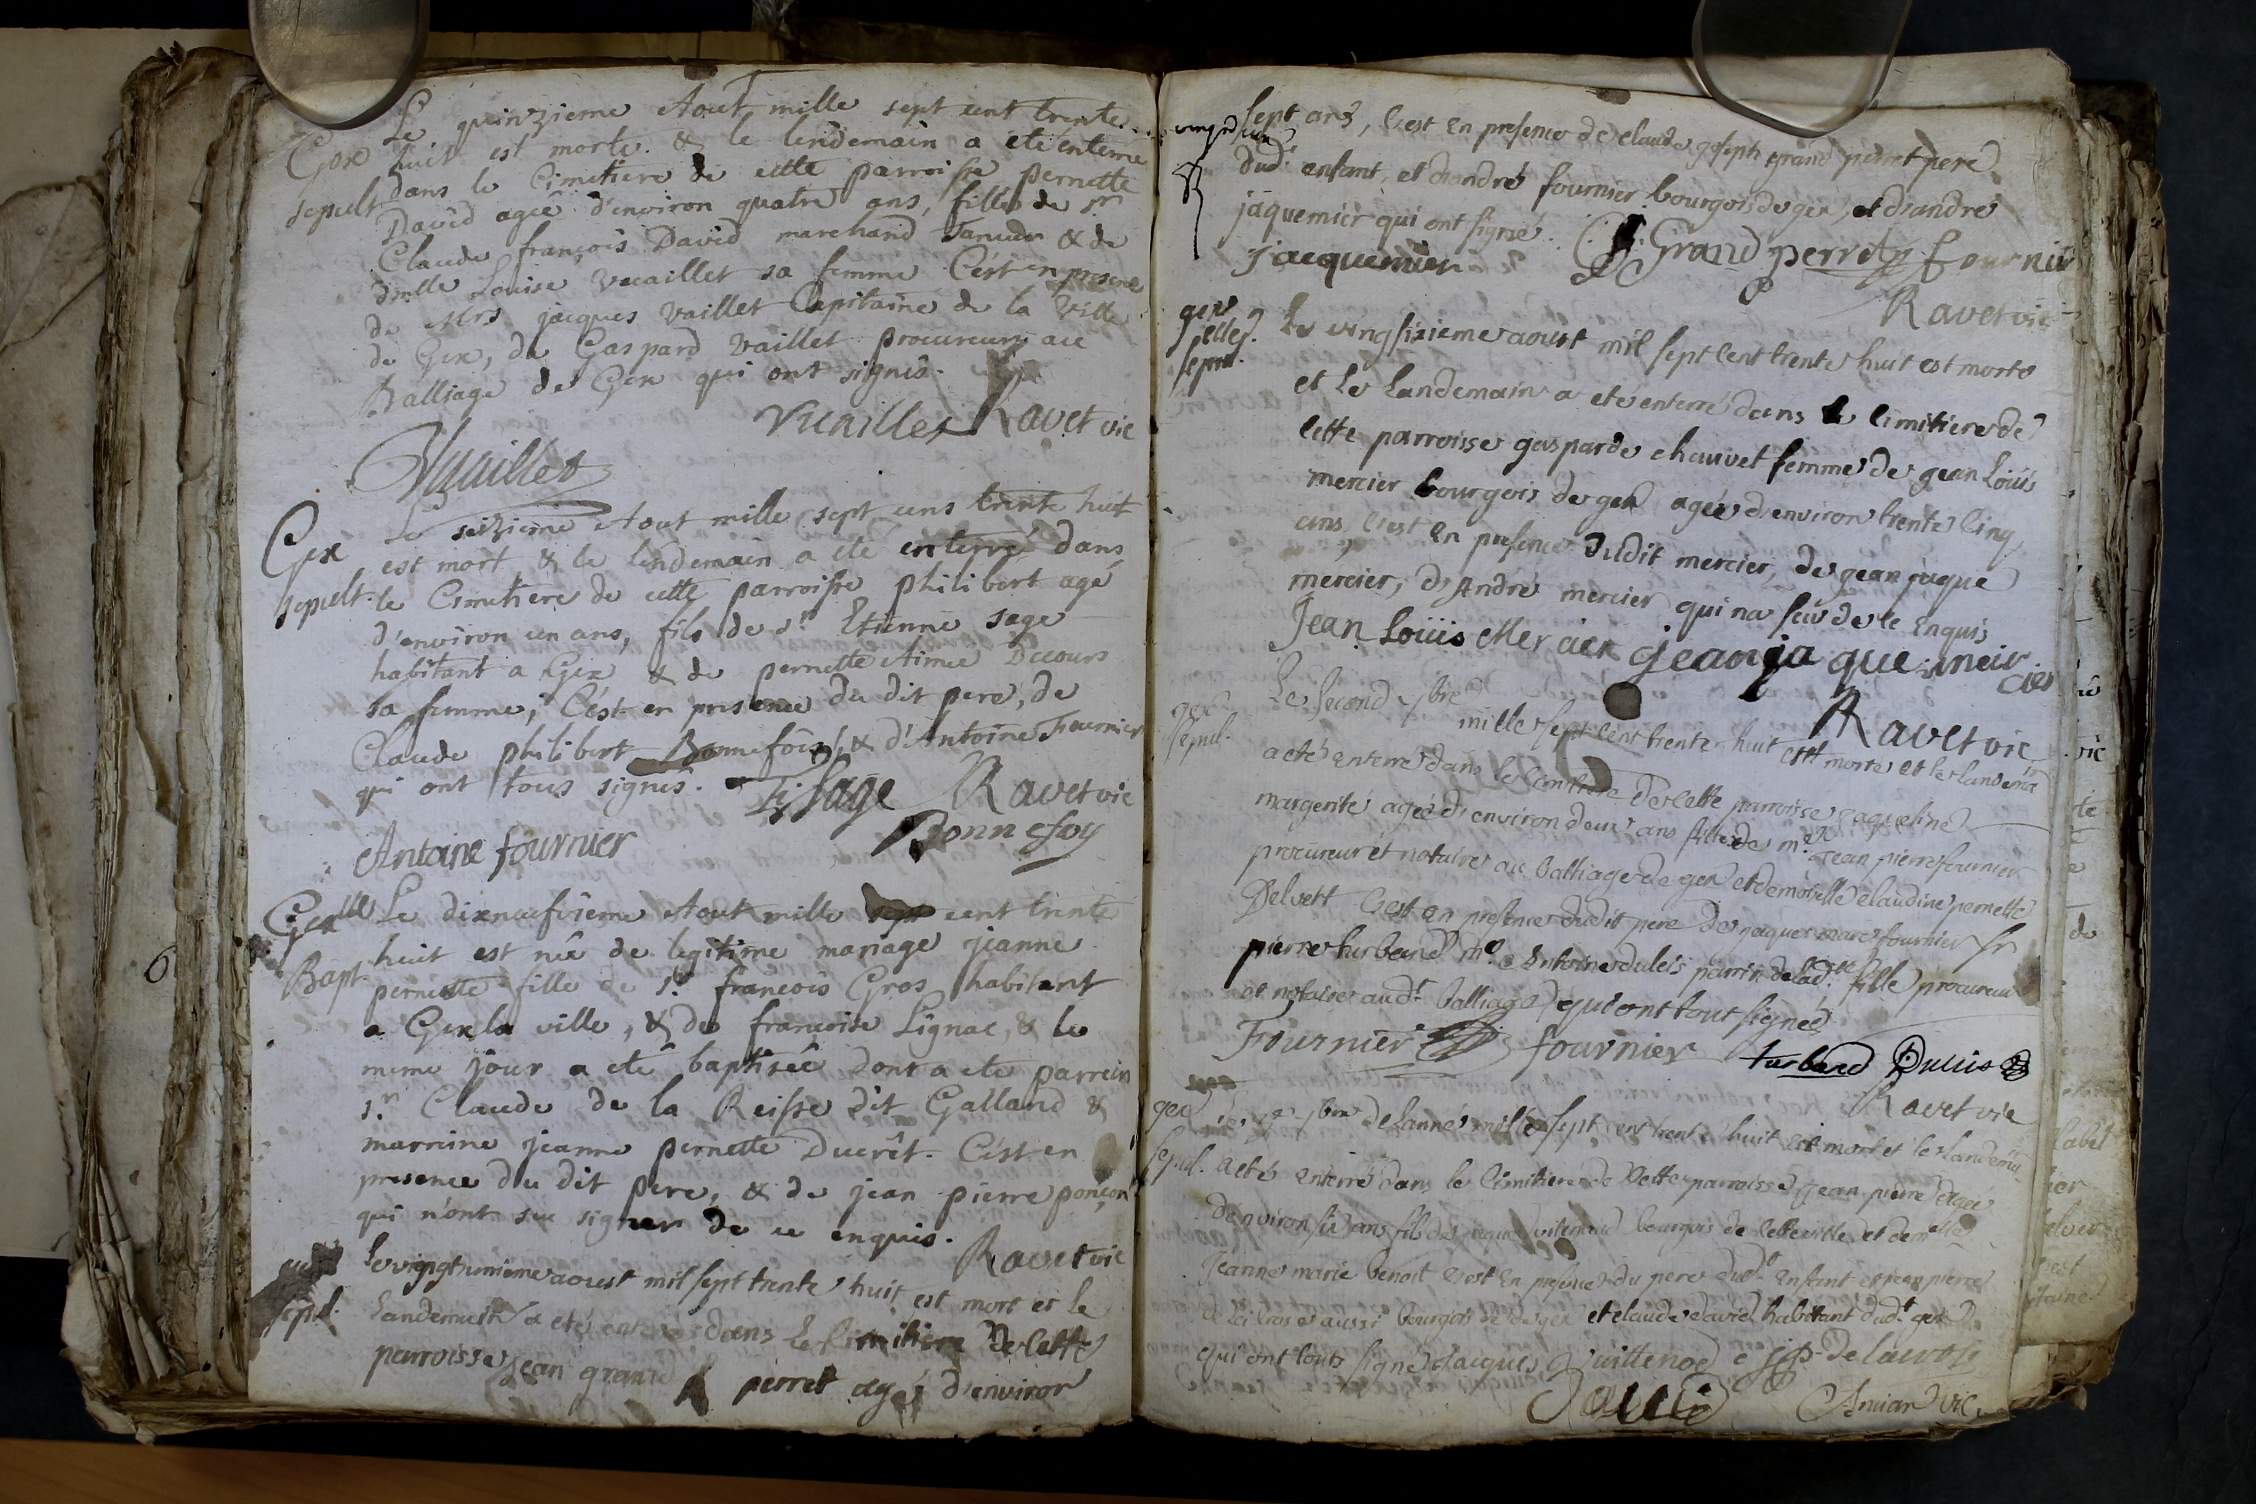 Le quinzieme Aout mille sept cent trente
Gex huit est morte & le lendemain a eté enterré
sepult. dans le Cimetiere de cette parroisse pernette
David agée d'environ quatre ans, fille de sr
Claude françois David marchand Taneur & de
dmlle Louise Vuaillet sa femme C'est en presence
de Mrs jacques Vaillet Capitaine de la Ville
de Gex, de Gaspard Vaillet procureur au
Balliage de Gex qui ont signés.
Vuaillet Ravet vic
Vuaillet
Le seizieme Aout mille sept cens trente huit
Gex est mort & le lendemain a eté enterré dans
sepult. le Cimetiere de cette parroisse philibert agé
d'environ un ans, fils de sr Etienne sage
habitant a Gex & de pernette Aimée Decours
sa femme, C'est en presence du dit pere, de
Claude philibert Bonnefoix, & d'Antoine Fournier
qui ont tous signés.
sage Ravet vic
Antoine fournier Bonnefoy
Gex Le dixneufvieme Aout mille sept cent trente
huit est née de legitime mariage jeanne
Bapt. pernette fille de sr. françois Gros habitant
a Gex la ville, & de françoise Lignac, & le
meme jour a eté baptisée dont a eté parrein
sr. Claude de la Reisse dit Galland &
marreine jeanne pernette Ducrêt. C'est en
presence du dit pere, & de jean pierre ponçon
qui n'ont su signer de ce enquis.
Ravet vic
Le vingtunieme aoust mil sept trente huit est mort et le
sepul. Landemain a eté enterré dans le Cimitiere de cette
parroisse jean grand perret agé d'environ
6
vingt un
sept ans, c'est en presence de claude joseph grand perret pere
dud. enfant, et d'andré fournier bourgois de gex, et d'andre
jaquemier qui ont signé.
jacquemier Grand perret fournier
Ravet vic
gex
sepul.
Le vingsixieme aoust mil sept cent trente huit est morte
et le Landemain a eté enterré dans le cimitiere de
cette parroisse gasparde chauvet femme de gean Loüis
mercier bourgois de gex agée d'environ trente cinq
ans, c'est en presence dudit mercier, de gean jaque
mercier, d'André mercier qui na seü de le enquis
Jean Loüis Mercier gean ja que meir
cier
Ravet vic
gex
sepul.
Le second 7bre
mille sept cent trente huit est morte et le landemain
a eté enterré dans le Cimitiere de cette parroisse jaqueline
margerite agée d'environ deux ans fille de me. Jean pierre fournier
procureur et notaire au balliage de gex et demoiselle claudine pernette
Delvert c'est en presence dudit pere de jaque marc fournier sr
pierre turband me. Antoine duleis parrin de lad.te fille procureur
et notaire aud.t balliage qui ont tout signéé
Fournier fournier turband Duleis
Ravet vic
gex
sepul.
7bre de lanné mille sept cent trente huit est mort et le landemain
a eté enterré dans le Cimitiere de Cette parroisse Jean pierre agée
d'environ six ans fils de jaque vuitenod bourgois de cette ville et demelle
Jeanne marie benoit c'est en presence du pere dud.t enfant et jean pierre
de lacrose aussi bourgois de gex et claude david habitant dud.t gex
qui ont touts signé Jacques vuittenod jp. Delacrose
David Anviar Vic.